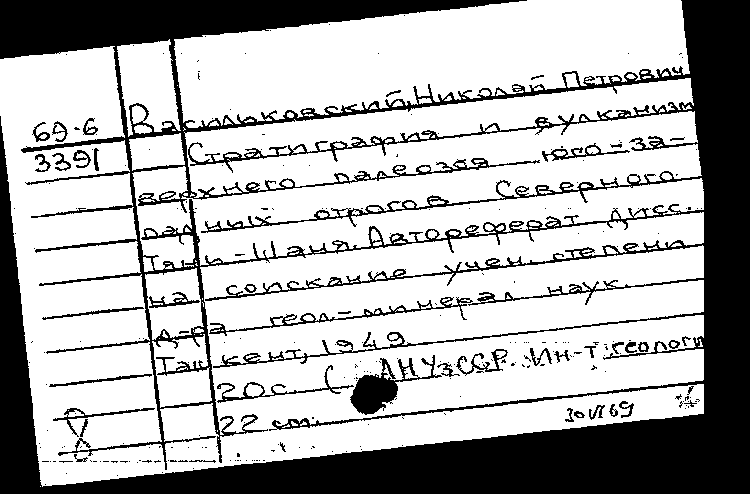 69-6 Васильковский, Николай Петрович
3391 Стратиграфия и вулканизм
верхнего палеозоя юго-за-
падных отрогов Северного
Тянь-Шаня. Автореферат дисс.
на соискание учен. степени
д-ра геол.-минерал наук.
Ташкент, 1949.
20с. (АН УзССР. Ин-т геологи
22 см.
30 VI 69
8